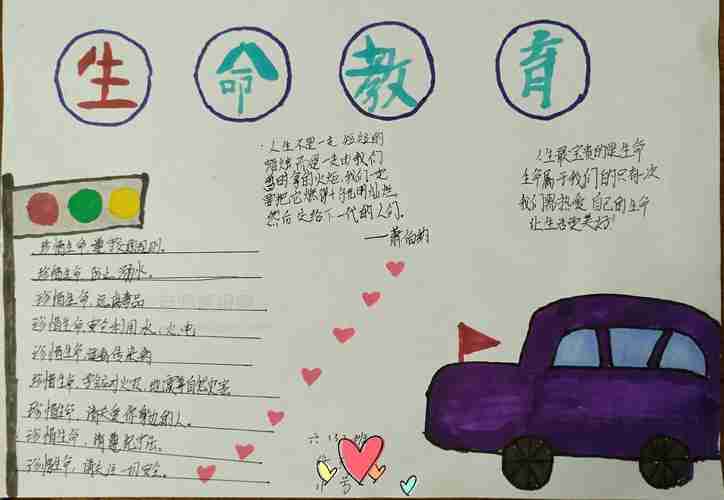 生命教育
人生不是一支短短的
蜡烛,而是一支由我们
暂时拿的火炬,我们一定
要把它燃得十分光明灿烂,
然后交给下一代的人们。
——萧伯纳
人生最宝贵的是生命
生命属于我们的只有一次
我们要热爱自己的生命
让生活更美好!
珍惜生命,遵守交通规则。
珍惜生命,防止溺水。
珍惜生命,远离毒品
珍惜生命,安全利用水、火、电
珍惜生命,传染病
珍惜生命,火灾、地震等自然灾害
珍惜生命,请关爱你身边的人。
珍惜生命,请遵纪守法。
珍惜生命,请关注一切安全。